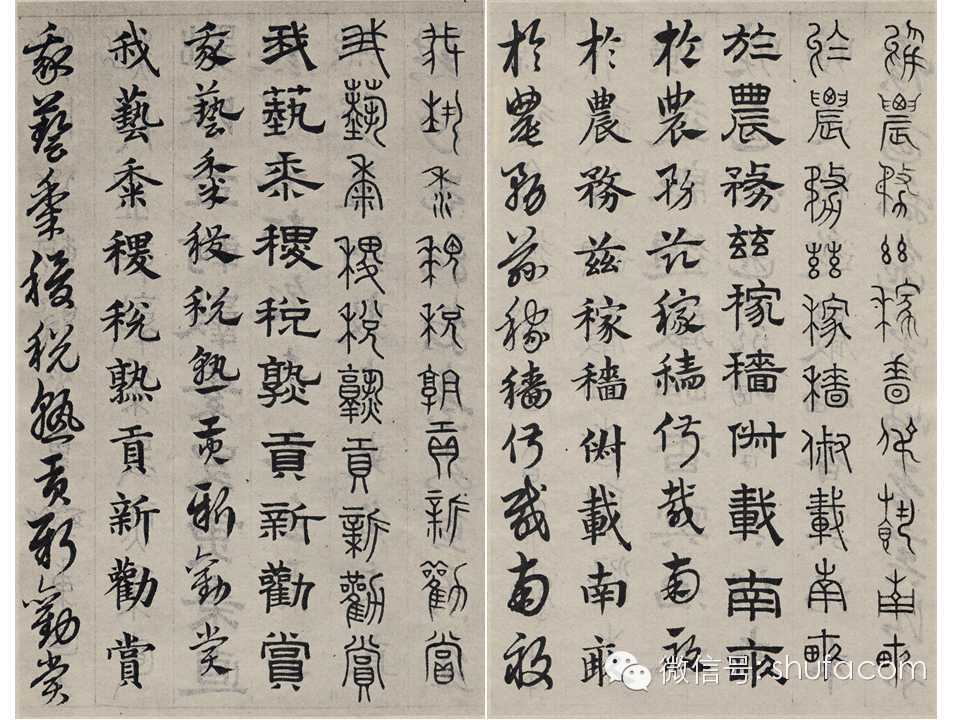 於農務茲稼穡俶載南畝
於農務茲稼穡俶載南畝
於農務茲稼穡俶載南畝
於農務茲稼穡俶載南畝
於農務茲稼穡俶載南畝
於農務茲稼穡俶載南畝
我藝黍稷稅熟貢新勸賞
我藝黍稷稅熟貢新勸賞
我藝黍稷稅熟貢新勸賞
我藝黍稷稅熟貢新勸賞
我藝黍稷稅熟貢新勸賞
我藝黍稷稅熟貢新勸賞
微信号: shufacom